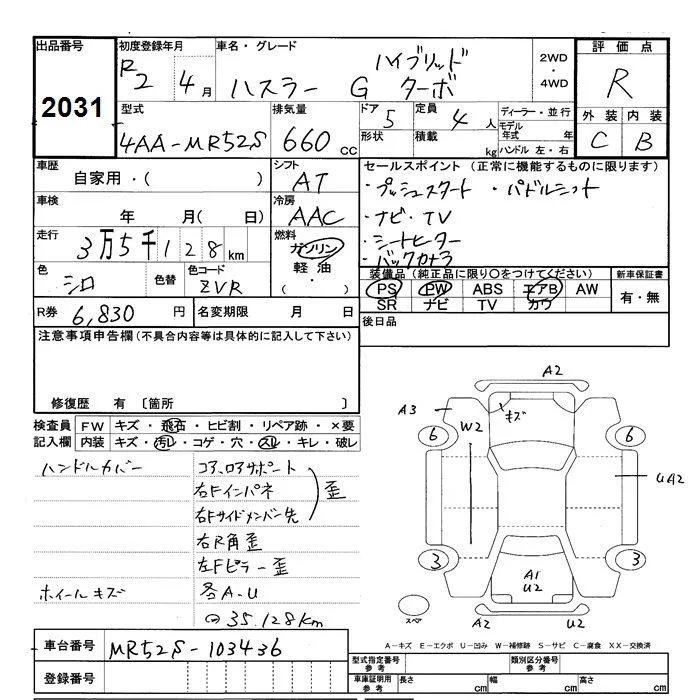 出品番号 初度登録年月 車名・グレード 評価点
2031 R2 4月 ハスラー G ハイブリッド ターボ 2WD・4WD R
型式 排気量 ドア 定員 ディーラー・並行 外装 内装
4AA-MR52S 660cc 5 4人 モデル年式 年 C B
形状 積載 kg ハンドル 左・右
車歴 シフト セールスポイント (正常に機能するものに限ります)
自家用・( ) AT ・プッシュスタート ・パドルシフト
車検 冷房 ・ナビ・TV
年 月( 日) AAC ・シートヒーター
走行 燃料 ・バックカメラ
3万5千128km ガソリン
軽油・
色 色替 色コード 装備品 (純正品に限り○をつけてください) 新車保証書
シロ ZVR PS PW ABS エアB AW 有・無
SR ナビ TV カワ
R券 6,830円 名変期限 月 日 後日品
注意事項申告欄(不具合内容等は具体的に記入して下さい)
修復歴 有 〔箇所 〕
検査員 FW キズ・飛石・ヒビ割・リペア跡・×要
記入欄 内装 キズ・汚レ・コゲ・穴・スレ・キレ・破レ
ハンドルカバー コアロアサポート
右Fインパネ 歪
右Fサイドメンバー先
右R角歪
左Fピラー歪
ホイールキズ 各A・U
35.128km
A2
A3 キズ
6 W2 6
UA2
3 3
A1
U2
スペア A2 U2
A-キズ E-エクボ U-凹み W-補修跡 S-サビ C-腐食 XX-交換済
車台番号 MR52S-103436
登録番号
型式指定番号 参考 類別区分番号 参考
車庫証明用 参考 長さ cm 幅 cm 高さ cm